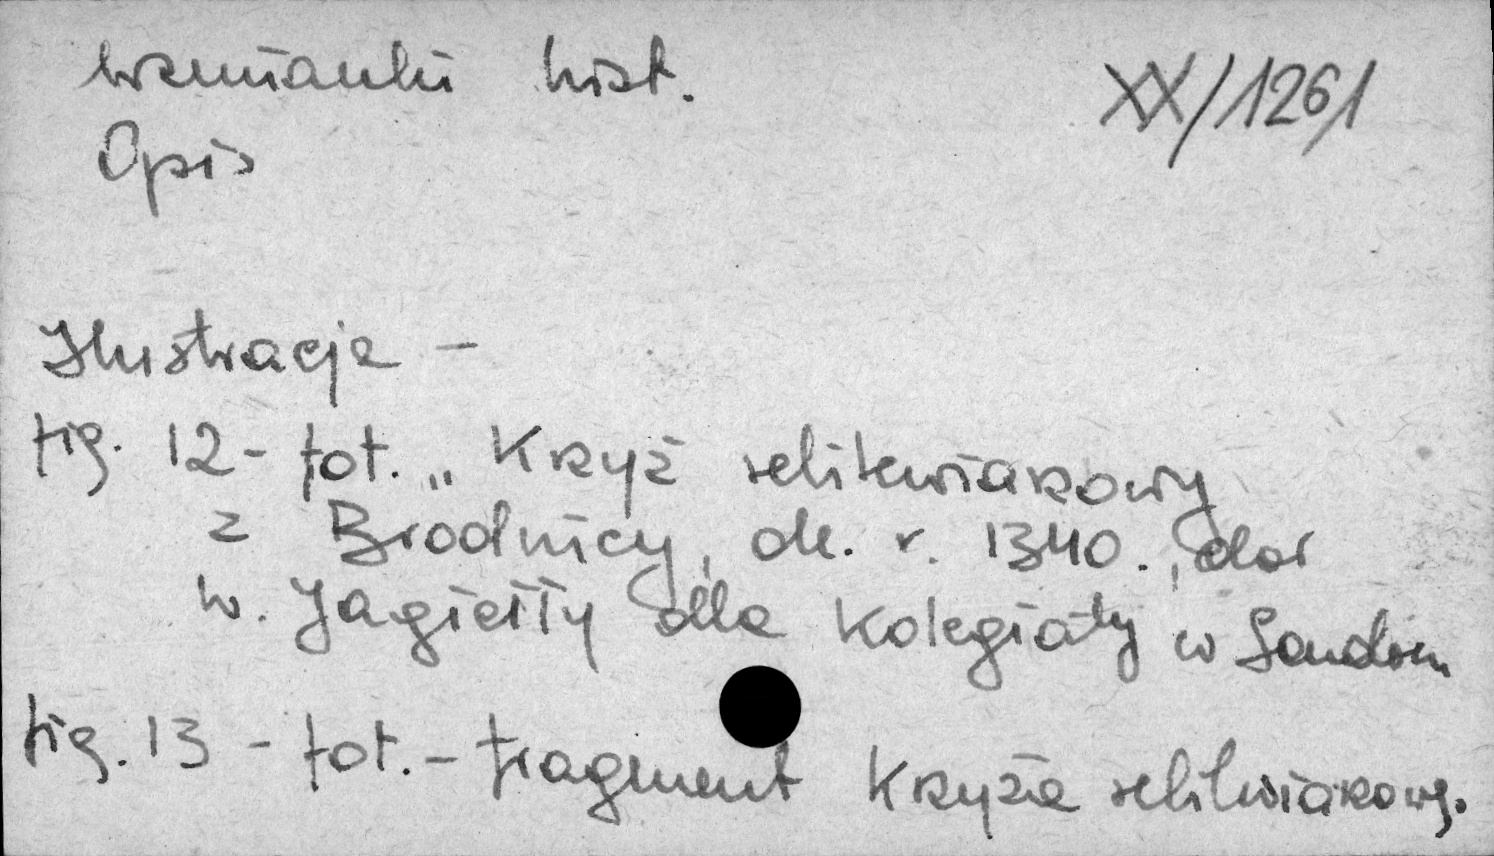 wzmianki hist.
XX/1261
Opis
Ilustracje -
fig. 12 - fot. „Krzyż relikwiarzowy
z Brodnicy, ok. r. 1340., dar
W. Jagiełły dla Kolegiaty w Sandom
fig. 13 - fot. - fragment Krzyża relikwiarzowg.